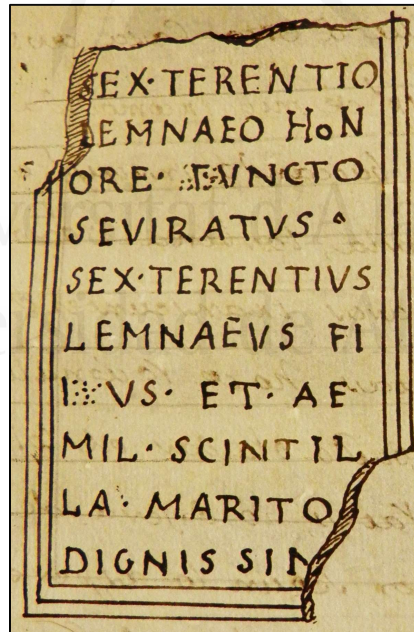 SEX·TERENTIO
LEMNAEO HoN
ORE· FVNCTO
SEVIRATVS
SEX·TERENTIVS
LEMNAEVS FI
VS· ET· AE
MIL· SCINTIL
LA· MARITO
DIGNISSIM